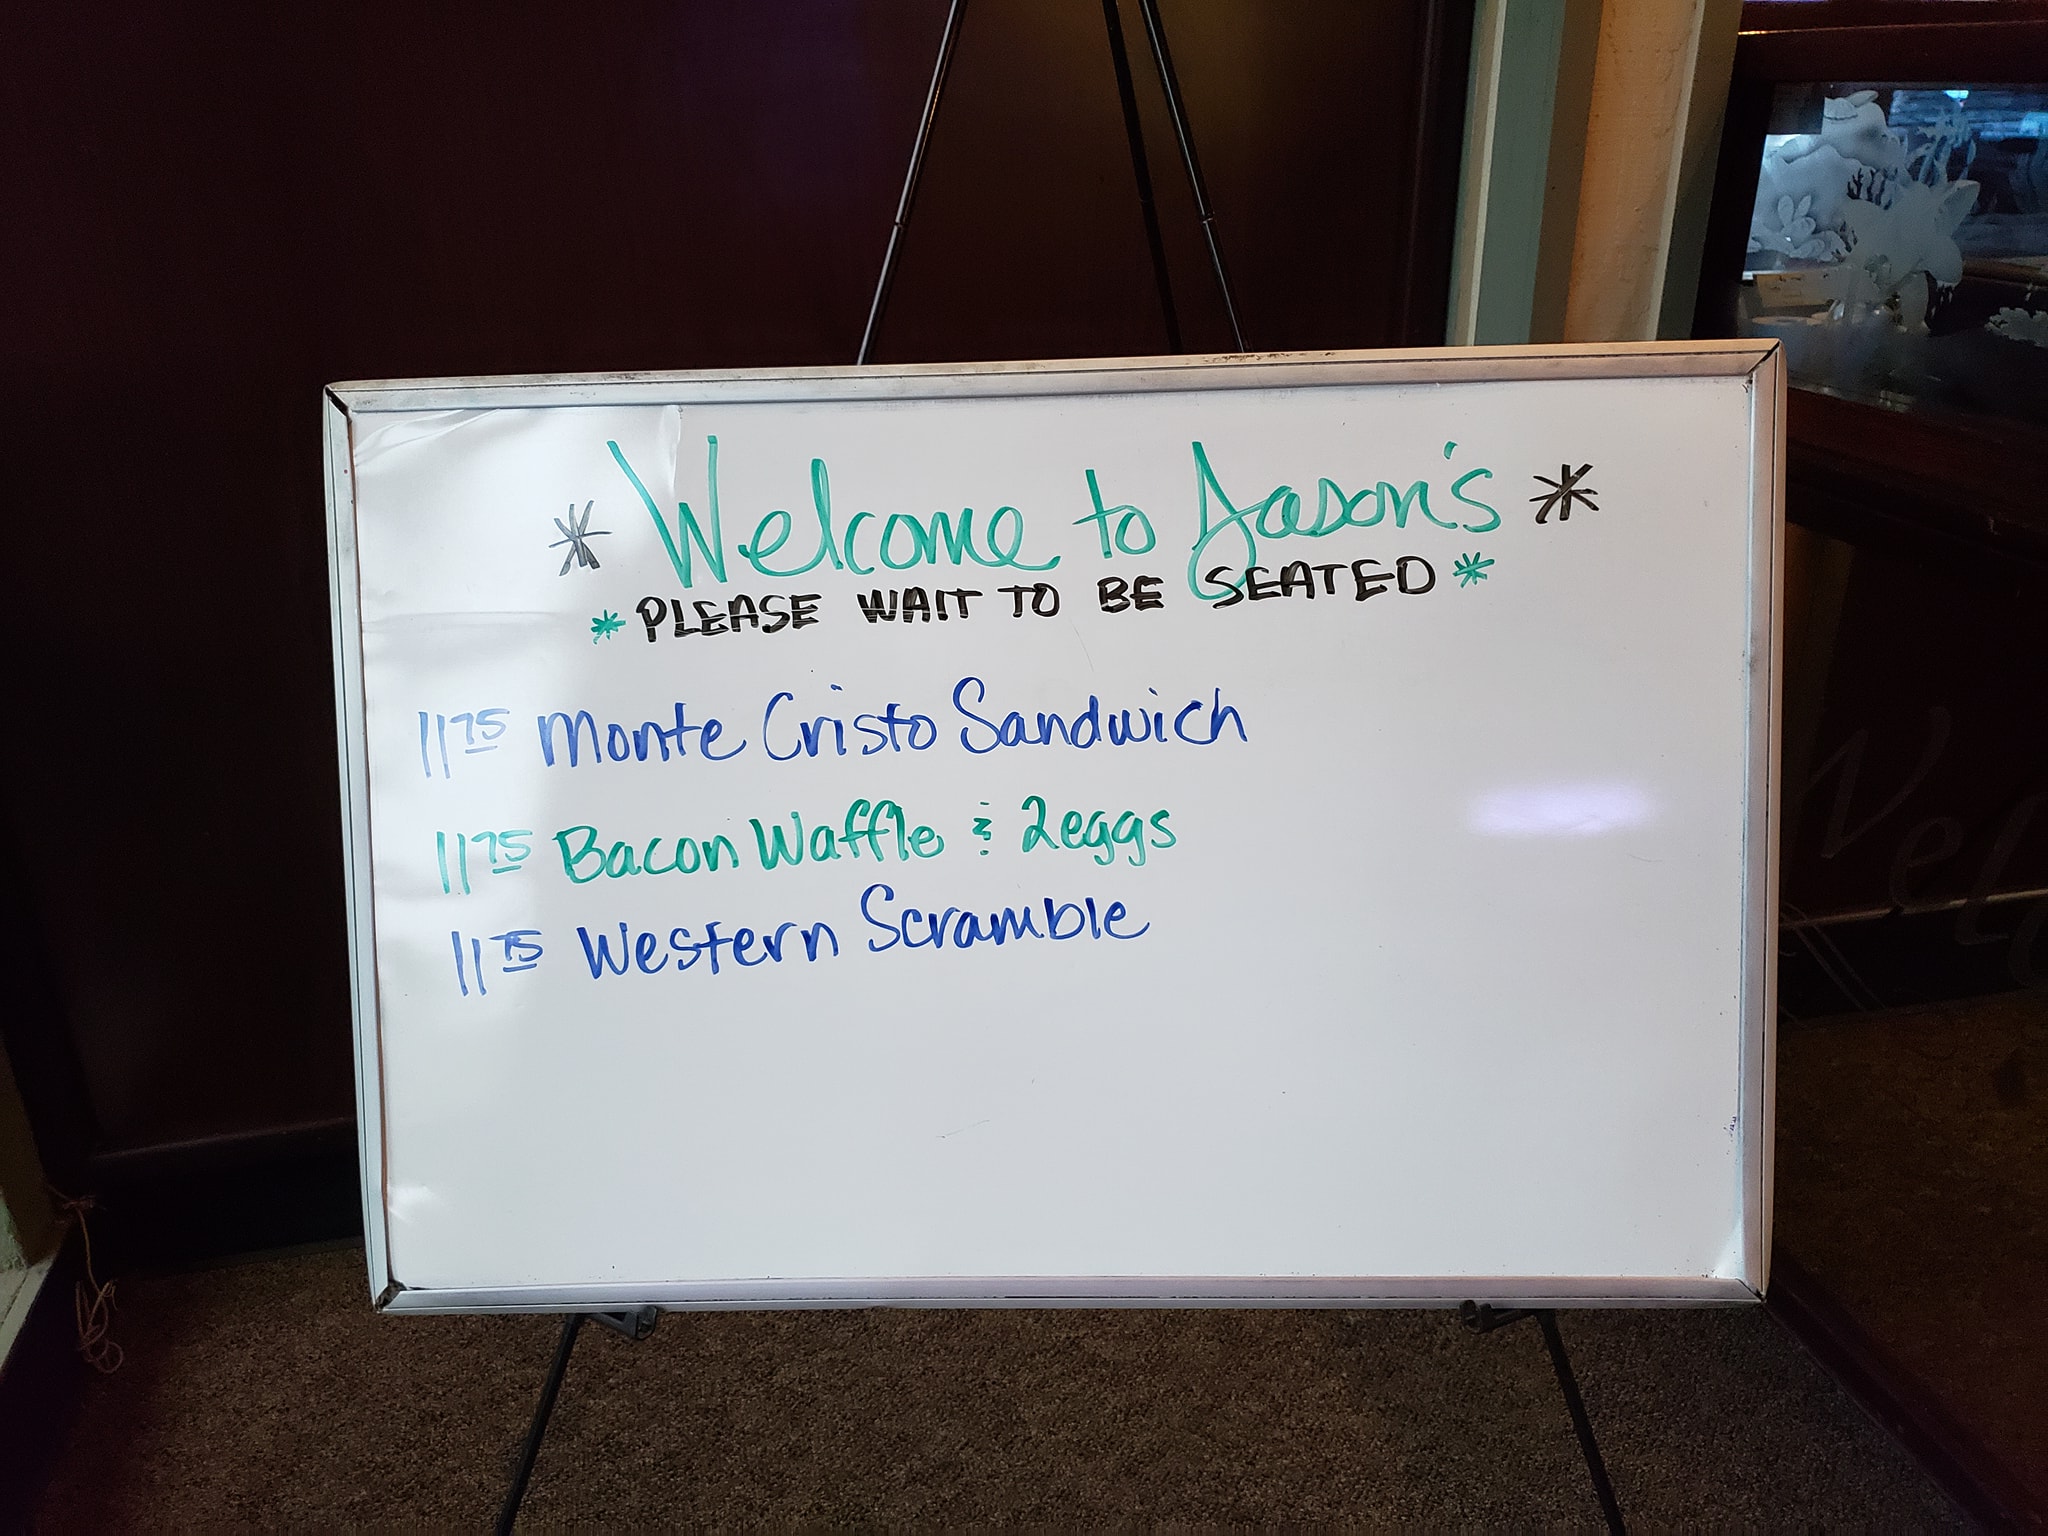 * Welcome to Jason's *
* PLEASE WAIT TO BE SEATED *
11 75 Monte Cristo Sandwich
11 75 Bacon Waffle & 2eggs
11 75 Western Scramble